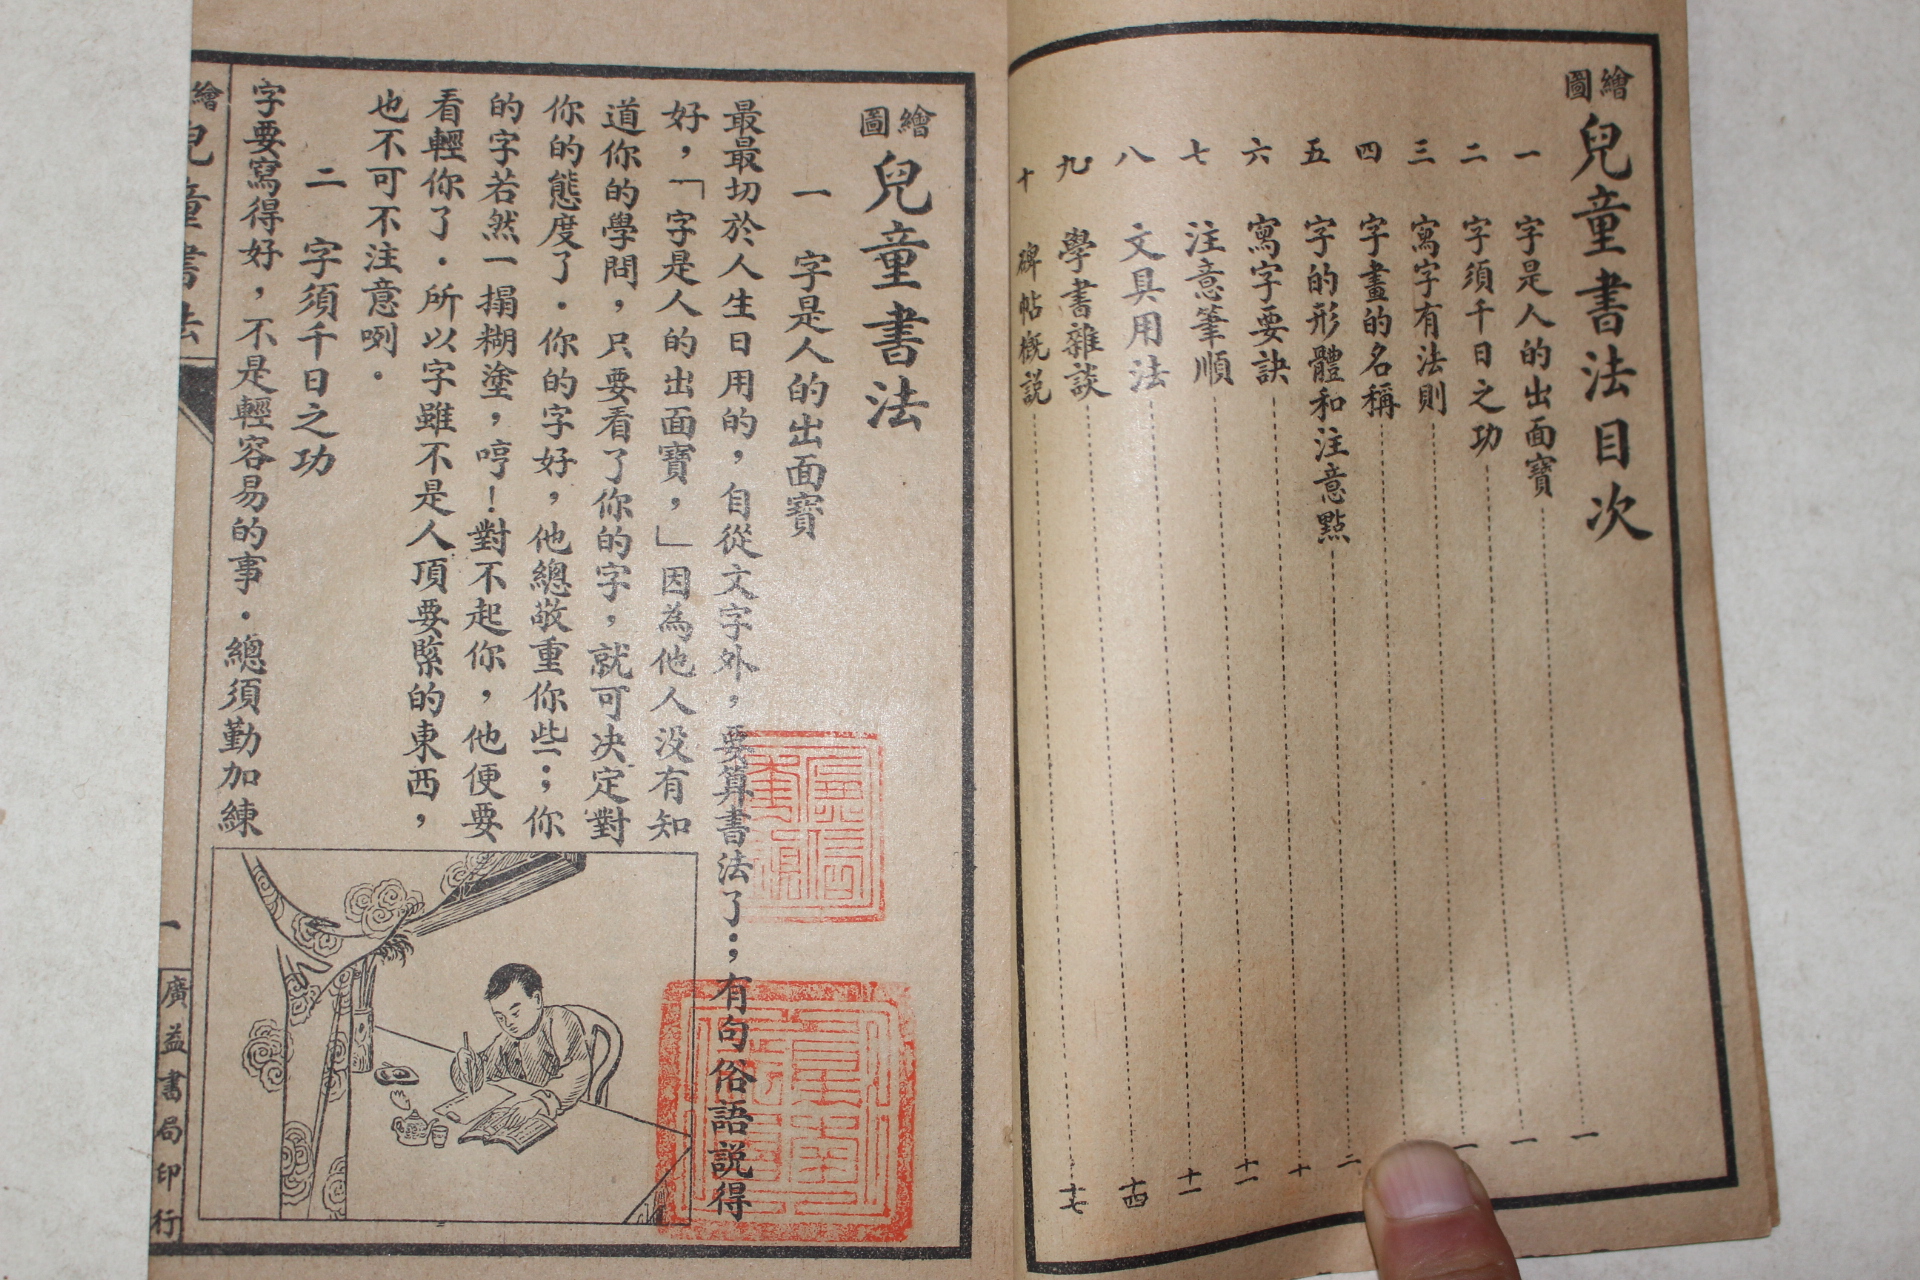 繪圖 兒童書法目次
一 字是人的出面寶 一
二 字須千日之功 一
三 寫字有法則 一
四 字畫的名稱
五 字的形體和注意點 二
六 寫字要訣 十
七 注意筆順 十一
八 文具用法 十一
九 學書雜談 十四
十 碑帖概説 十七
繪圖 兒童書法
一 字是人的出面寶
最最切於人生日用的，自從文字外，要算書法了；有句俗語説得
好，「字是人的出面寶，」因為他人没有知
道你的學問，只要看了你的字，就可决定對
你的態度了．你的字好，他總敬重你些；你
的字若然一搨糊塗，哼！對不起你，他便要
看輕你了．所以字雖不是人頂要緊的東西，
也不可不注意咧．
二 字須千日之功
字要寫得好，不是輕容易的事．總須勤加練
繪 兒童書法 一 廣益書局印行